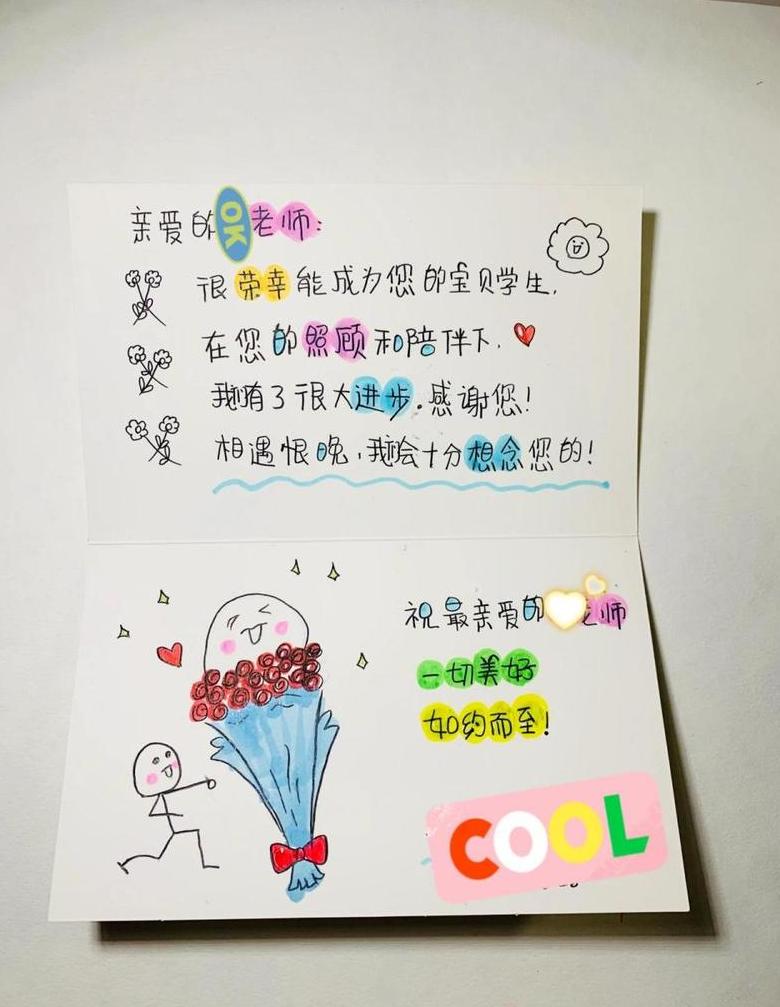 亲爱的OK老师:
很荣幸能成为您的宝贝学生,
在您的照顾和陪伴下,
我有了很大进步.感谢您!
相遇恨晚,我会十分想念您的!
祝最亲爱的老师
一切美好
如约而至!
COOL